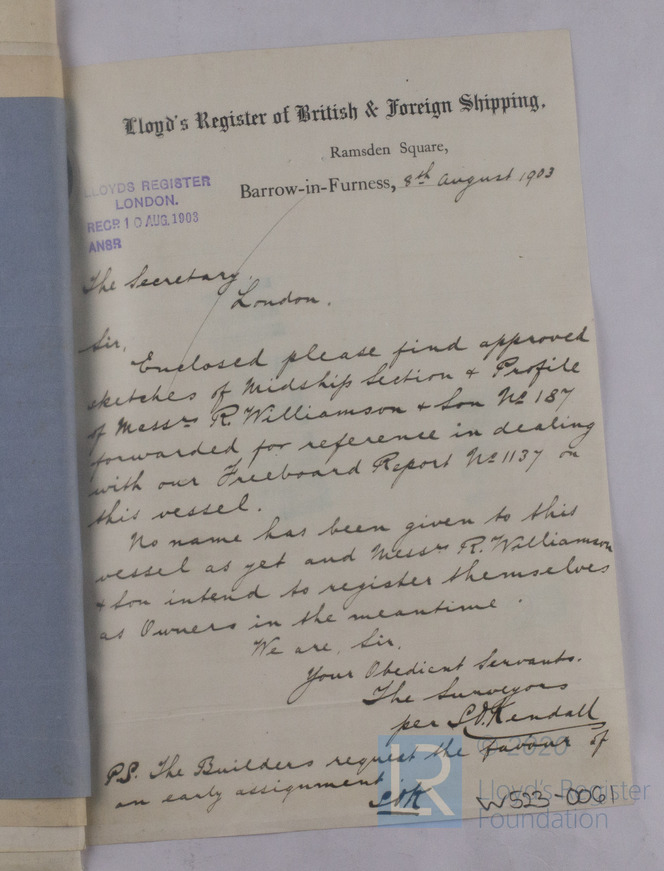 Lloyd's Register of British & Foreign Shipping.
Ramsden Square,
Barrow-in-Furness, 8th August 1903
LLOYDS REGISTER
LONDON.
RECD 10 AUG. 1903
ANSR
The Secretary,
London.
Sir,
Enclosed please find approved
sketches of Midship Section & Profile
of Messrs R. Williamson & Son No 187
forwarded for reference in dealing
with our Freeboard Report No 1137 on
this vessel.
No name has been given to this
vessel as yet and Messrs R. Williamson
& Son intend to register themselves
as Owners in the meantime.
We are, Sir,
Your Obedient Servants.
The Surveyors
per Kendall
P.S. The Builders request the favour of
an early assignment
LR
© 2020
Lloyd's Register
Foundation
W523-0061